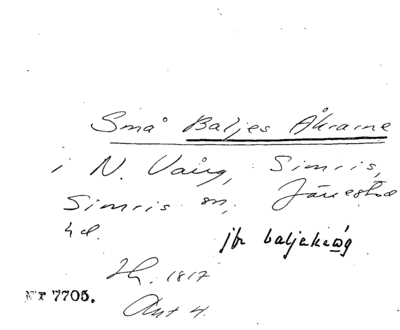 Små Baljes Åkrarne
i N. Vång, Simris,
Simris sn, Järrestad
hd. jfr baljekæg
H. 1817
Nr 7705.
Akt 4.